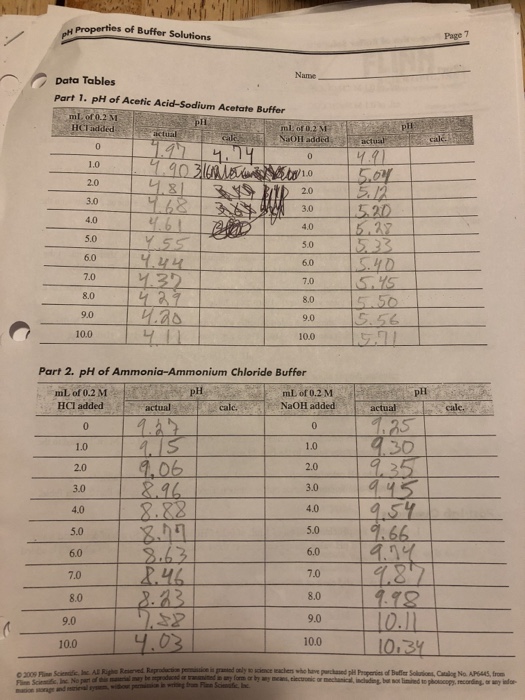 pH Properties of Buffer Solutions
Page 7
Name
Data Tables
Part 1. pH of Acetic Acid–Sodium Acetate Buffer
mL of 0.2 M HCl added pH mL of 0.2 M NaOH added pH
actual calc. actual calc.
0 4.97 4.74 0 4.91
1.0 4.90 1.0 5.04
2.0 4.81 2.0 5.12
3.0 4.68 3.0 5.20
4.0 4.61 4.0 5.28
5.0 4.55 5.0 5.33
6.0 4.44 6.0 5.40
7.0 4.37 7.0 5.45
8.0 4.29 8.0 5.50
9.0 4.20 9.0 5.56
10.0 4.11 10.0 5.71
Part 2. pH of Ammonia–Ammonium Chloride Buffer
mL of 0.2 M HCl added pH mL of 0.2 M NaOH added pH
actual calc. actual calc.
0 9.27 0 9.25
1.0 9.15 1.0 9.30
2.0 9.06 2.0 9.35
3.0 8.96 3.0 9.45
4.0 8.88 4.0 9.54
5.0 8.77 5.0 9.66
6.0 8.63 6.0 9.74
7.0 8.46 7.0 9.87
8.0 8.23 8.0 9.98
9.0 7.58 9.0 10.11
10.0 4.03 10.0 10.34
© 2009 Flinn Scientific, Inc. All Rights Reserved. Reproduction permission is granted only to science teachers who have purchased pH Properties of Buffer Solutions, Catalog No. AP6445, from
Flinn Scientific, Inc. No part of this material may be reproduced or transmitted in any form or by any means, electronic or mechanical, including, but not limited to photocopy, recording, or any infor-
mation storage and retrieval system, without permission in writing from Flinn Scientific, Inc.